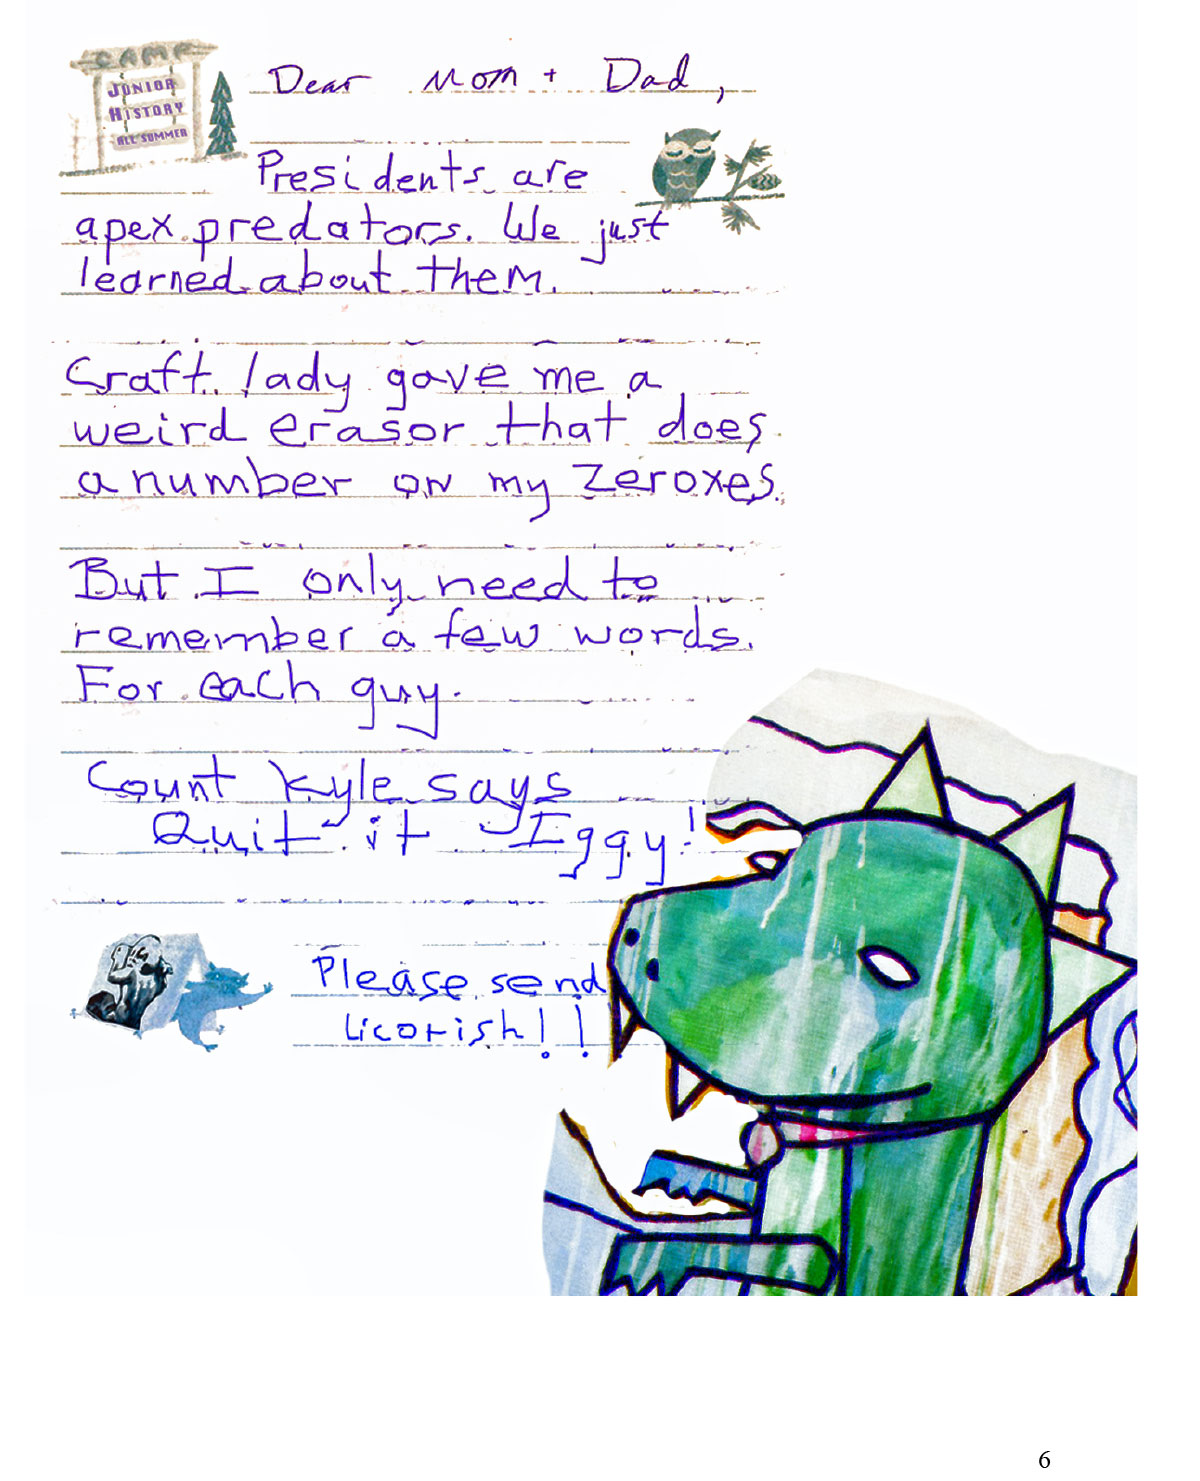 CAMP
JUNIOR
HISTORY
ALL SUMMER
Dear Mom + Dad,
Presidents are
apex predators. We just
learned about them.
Craft lady gave me a
weird erasor that does
a number on my zeroxes.
But I only need to
remember a few words.
For each guy.
Count Kyle says
Quit it Iggy!
Please send
licorish!!
6